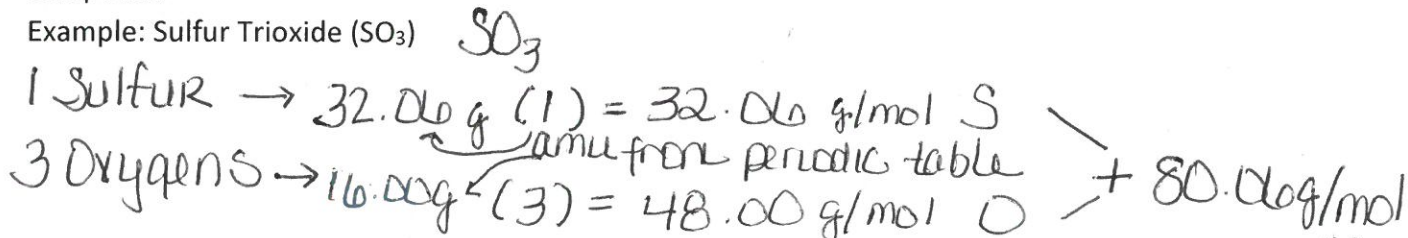 Example: Sulfur Trioxide (SO₃) SO₃
1 Sulfur → 32.06g (1) = 32.06 g/mol S
amu from periodic table
3 Oxygens → 16.00g (3) = 48.00 g/mol O
+ 80.06g/mol